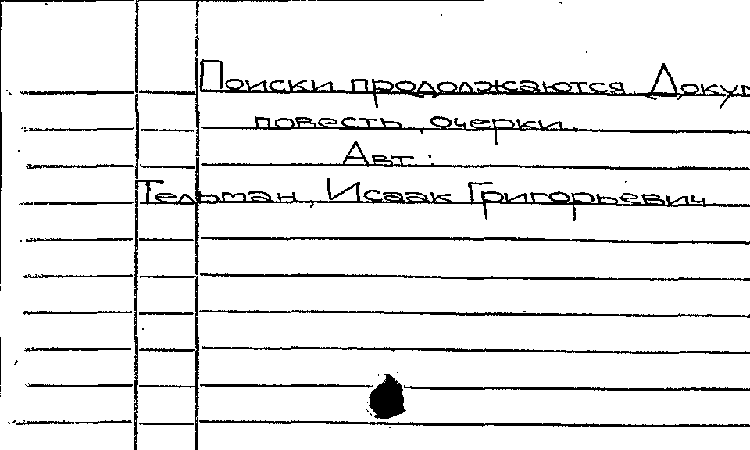 Поиски продолжаются Докум
повесть, очерки.
Авт.:
Тельман, Исаак Григорьевич